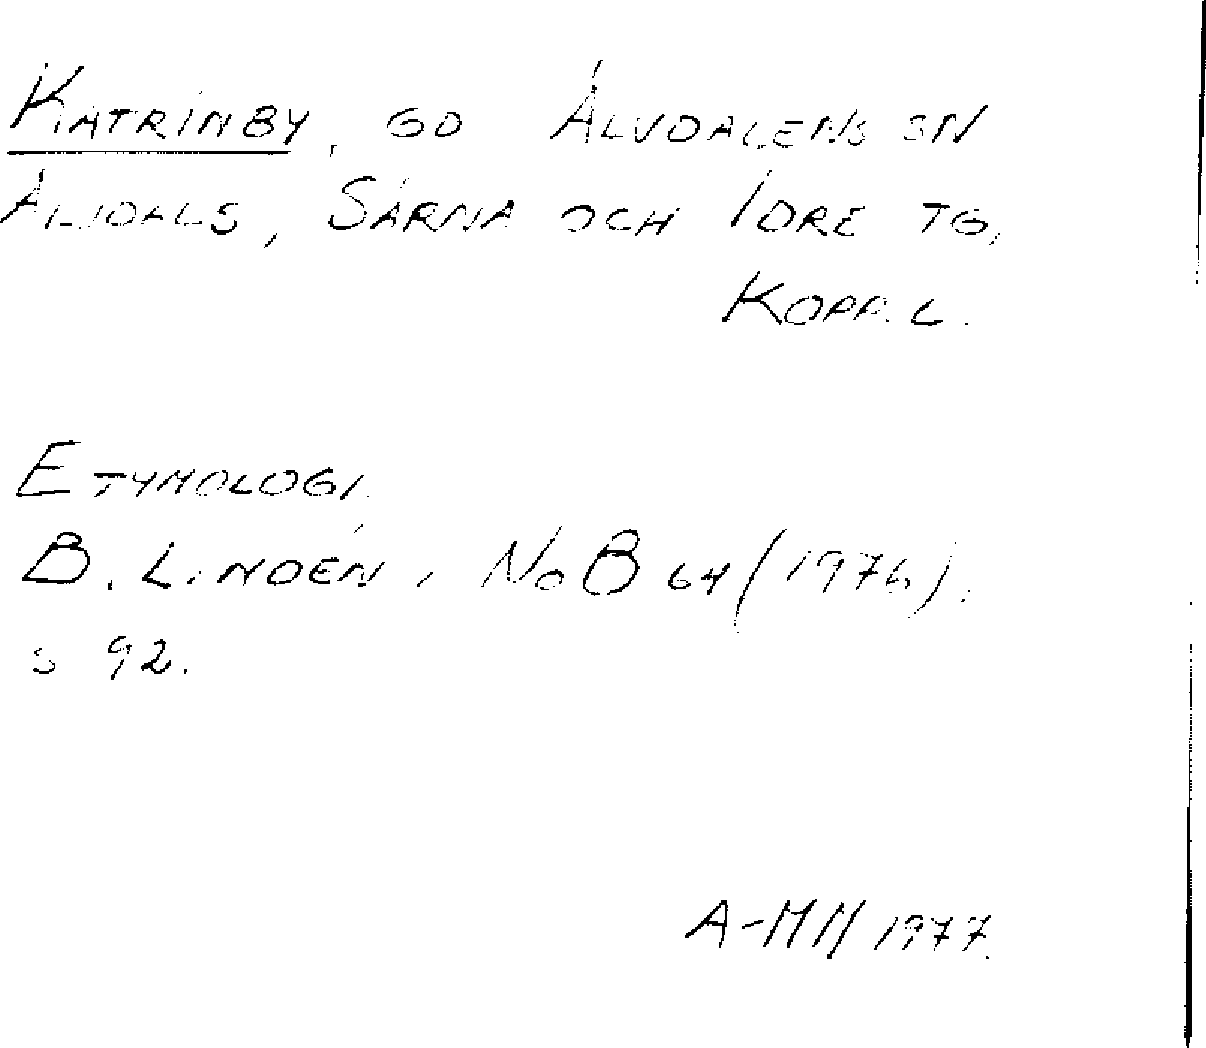 KATRINBY, GD ÄLVDALENS SN
ÄLVDALS, SÄRNA OCH IDRE TG,
KOPP. L.
ETYMOLOGI.
B. LINDÉN, NoB 64 (1976).
S 92.
A-MH 1977.